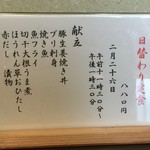 日替わり定食
八八〇円
二月二十六日
午前十一時三〇分～
午後一時三〇分
献立
豚生姜焼き丼
ブリ刺身
焼き魚
魚フライ
切干大根うま煮
ほうれん草おひたし
赤だし 漬物